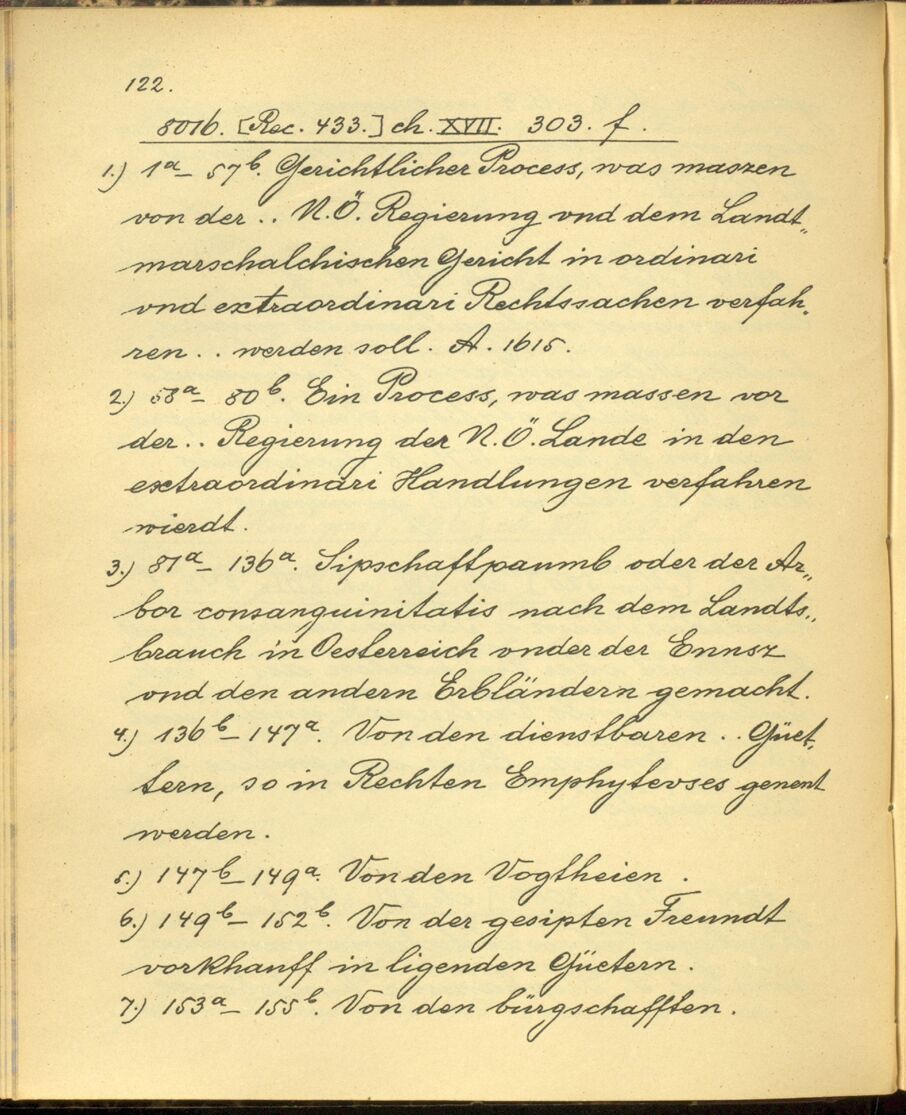 122.
8016. [Rec. 433.] ch. XVII. 303. f.
1.) 1a– 57b. Gerichtlicher Process, was maszen
von der .. N.Ö. Regierung vnd dem Landt„
marschalchischen Gericht in ordinari
vnd extraordinari Rechtssachen verfah„
ren .. werden soll. A. 1615.
2.) 58a– 80b. Ein Process, was massen vor
der .. Regierung der N.Ö. Lande in den
extraordinari Handlungen verfahren
wierdt.
3.) 81a– 136a. Sipschaftpaumb oder der Ar„
bor consanguinitatis nach dem Landts„
brauch in Oesterreich vnder der Ennsz
vnd den andern Erbländern gemacht.
4.) 136b– 147a. Von den dienstbaren .. Güet„
tern, so in Rechten Emphytevses genent
werden.
5.) 147b– 149a. Von den Vogtheien.
6.) 149b– 152b. Von der gesipten Freundt
vorkhauff in ligenden Güetern.
7.) 153a– 155b. Von den bürgschafften.